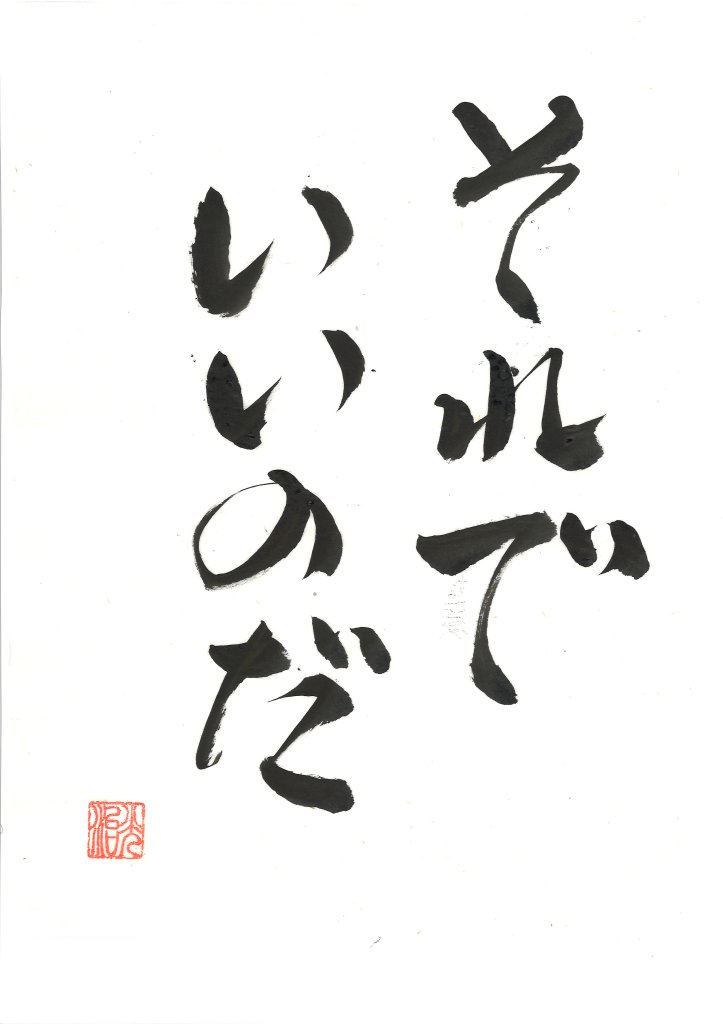 それで
いいのだ